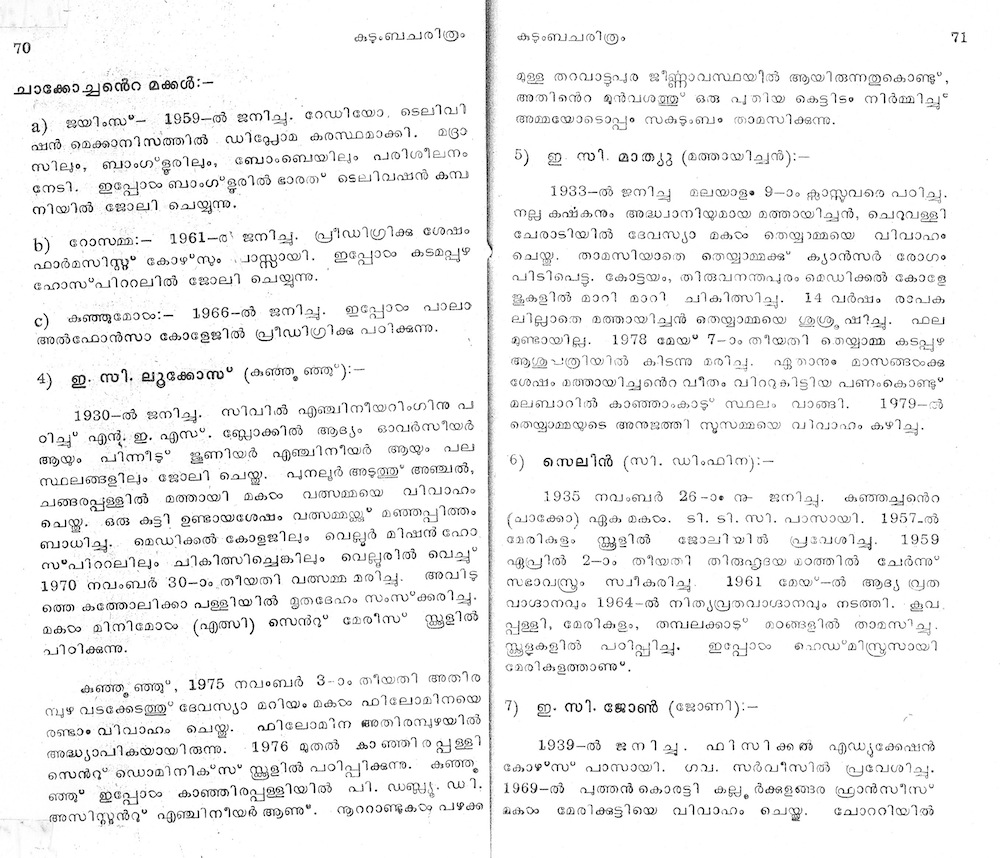 70
കുടുംബചരിത്രം
ചാക്കോച്ചൻെറ മക്കൾ:—
a) ജയിംസ്— 1959-ൽ ജനിച്ചു. റേഡിയോ, ടെലിവി
ഷൻ മെക്കാനിസത്തിൽ ഡിപ്ലോമ കരസ്ഥമാക്കി. മദ്രാ
സിലും, ബാംഗ്ളൂരിലും, ബോംബെയിലും പരിശീലനം
നേടി. ഇപ്പോഠം ബാംഗ്ളൂരിൽ ഭാരത് ടെലിവഷൻ കമ്പ
നിയിൽ ജോലി ചെയ്യുന്നു.
b) റോസമ്മ:— 1961-ൽ ജനിച്ചു. പ്രീഡിഗ്രിക്കു ശേഷം
ഫാർമസിസ്റ്റ് കോഴ്സും പാസ്സായി. ഇപ്പോഠം കടമപ്പുഴ
ഹോസ്പിററലിൽ ജോലി ചെയ്യുന്നു.
c) കുഞ്ഞുമോഠം:— 1966-ൽ ജനിച്ചു. ഇപ്പോഠം പാലാ
അൽഫോൻസാ കോളേജിൽ പ്രീഡിഗ്രിക്കു പഠിക്കുന്നു.
4) ഇ. സി. ലൂക്കോസ് (കുഞ്ഞൂഞ്ഞ്):—
1930-ൽ ജനിച്ചു. സിവിൽ എഞ്ചിനീയറിംഗിനു പ
ഠിച്ച് എൻ. ഇ. എസ്. ബ്ലോക്കിൽ ആദ്യം ഓവർസീയർ
ആയും പിന്നീട് ജൂണിയർ എഞ്ചിനീയർ ആയും പല
സ്ഥലങ്ങളിലും ജോലി ചെയ്തു. പുനലൂർ അടുത്ത് അഞ്ചൽ,
ചങ്ങരപ്പള്ളിൽ മത്തായി മകഠം വത്സമ്മയെ വിവാഹം
ചെയ്തു. ഒരു കുട്ടി ഉണ്ടായശേഷം വത്സമ്മയ്ക്ക് മഞ്ഞപ്പിത്തം
ബാധിച്ചു. മെഡിക്കൽ കോളജിലും വെല്ലൂർ മിഷൻ ഹോ
സ്പിററലിലും ചികിത്സിച്ചെങ്കിലും വെല്ലൂരിൽ വെച്ച്
1970 നവംബർ 30-ാം തീയതി വത്സമ്മ മരിച്ചു. അവിട
ത്തെ കത്തോലിക്കാ പള്ളിയിൽ മൃതദേഹം സംസ്ക്കരിച്ചു.
മകഠം മിനിമോഠം (എത്സി) സെൻറ് മേരീസ് സ്ക്കൂളിൽ
പഠിക്കുന്നു.
കുഞ്ഞൂഞ്ഞ്, 1975 നവംബർ 3-ാം തീയതി അതിര
മ്പുഴ വടക്കേടത്ത് ദേവസ്യാ മറിയം മകഠം ഫിലോമിനയെ
രണ്ടാം വിവാഹം ചെയ്തു. ഫിലോമിന അതിരമ്പുഴയിൽ
അദ്ധ്യാപികയായിരുന്നു. 1976 മുതൽ കാഞ്ഞിരപ്പള്ളി
സെൻറ് ഡൊമിനിക്സ് സ്ക്കൂളിൽ പഠിപ്പിക്കുന്നു. കുഞ്ഞൂ
ഞ്ഞ് ഇപ്പോഠം കാഞ്ഞിരപ്പള്ളിയിൽ പി. ഡബ്ല്യു. ഡി.
അസിസ്റ്റൻറ് എഞ്ചിനീയർ ആണ്. നൂററാണ്ടുകഠം പഴക്ക
കുടുംബചരിത്രം
71
മുള്ള തറവാട്ടുപുര ജീർണ്ണാവസ്ഥയിൽ ആയിരുന്നതുകൊണ്ട്,
അതിൻെറ മുൻവശത്ത് ഒരു പുതിയ കെട്ടിടം നിർമ്മിച്ച്
അമ്മയോടൊപ്പം സകുടുംബം താമസിക്കുന്നു.
5) ഇ സി. മാത്യു (മത്തായിച്ചൻ):—
1933-ൽ ജനിച്ചു മലയാളം 9-ാം ക്ലാസ്സുവരെ പഠിച്ചു.
നല്ല കർഷകനും അദ്ധ്വാനിയുമായ മത്തായിച്ചൻ, ചെറുവള്ളി
ചേരാടിയിൽ ദേവസ്യാ മകഠം തെയ്യാമ്മയെ വിവാഹം
ചെയ്തു. താമസിയാതെ തെയ്യാമ്മക്ക് ക്യാൻസർ രോഗം
പിടിപെട്ടു. കോട്ടയം, തിരുവനന്തപുരം മെഡിക്കൽ കോളേ
ജുകളിൽ മാറി മാറി ചികിത്സിച്ചു. 14 വർഷം രാപക
ലില്ലാതെ മത്തായിച്ചൻ തെയ്യാമ്മയെ ശുശ്രൂഷിച്ചു. ഫല
മുണ്ടായില്ല. 1978 മേയ് 7-ാം തീയതി തെയ്യാമ്മ കടപ്പുഴ
ആശുപത്രിയിൽ കിടന്നു മരിച്ചു. ഏതാനും മാസങ്ങഠംക്കു
ശേഷം മത്തായിച്ചൻെറ വീതം വിററുകിട്ടിയ പണംകൊണ്ട്
മലബാറിൽ കാഞ്ഞാംകാട് സ്ഥലം വാങ്ങി. 1979-ൽ
തെയ്യാമ്മയുടെ അനുജത്തി സൂസമ്മയെ വിവാഹം കഴിച്ചു.
6) സെലീൻ (സി. ഡിംഫിന):—
1935 നവംബർ 26-ാം നു- ജനിച്ചു. കുഞ്ഞച്ചൻെറ
(ചാക്കോ) ഏക മകഠം. ടി. ടി. സി. പാസായി. 1957-ൽ
മേരികുളം സ്ക്കൂളിൽ ജോലിയിൽ പ്രവേശിച്ചു. 1959
ഏപ്രിൽ 2-ാം തീയതി തിരുഹൃദയ മഠത്തിൽ ചേർന്ന്
സഭാവസ്ത്രം സ്വീകരിച്ചു. 1961 മേയ്-ൽ ആദ്യ വ്രത
വാഗ്ദാനവും 1964-ൽ നിത്യവ്രതവാഗ്ദാനവും നടത്തി. കൂവ
പ്പള്ളി, മേരികുളം, തമ്പലക്കാട് മഠങ്ങളിൽ താമസിച്ചു.
സ്ക്കൂളുകളിൽ പഠിപ്പിച്ചു. ഇപ്പോഠം ഹെഡ്മിസ്ട്രസായി
മേരികുളത്താണ്.
7) ഇ. സി. ജോൺ (ജോണി):—
1939-ൽ ജനിച്ചു. ഫിസിക്കൽ എഡ്യുക്കേഷൻ
കോഴ്സ് പാസായി. ഗവ. സർവീസിൽ പ്രവേശിച്ചു.
1969-ൽ പുത്തൻകൊരട്ടി കല്ലൂർക്കുളങ്ങര ഫ്രാൻസീസ്
മകഠം മേരിക്കുട്ടിയെ വിവാഹം ചെയ്തു. ചോററിയിൽ